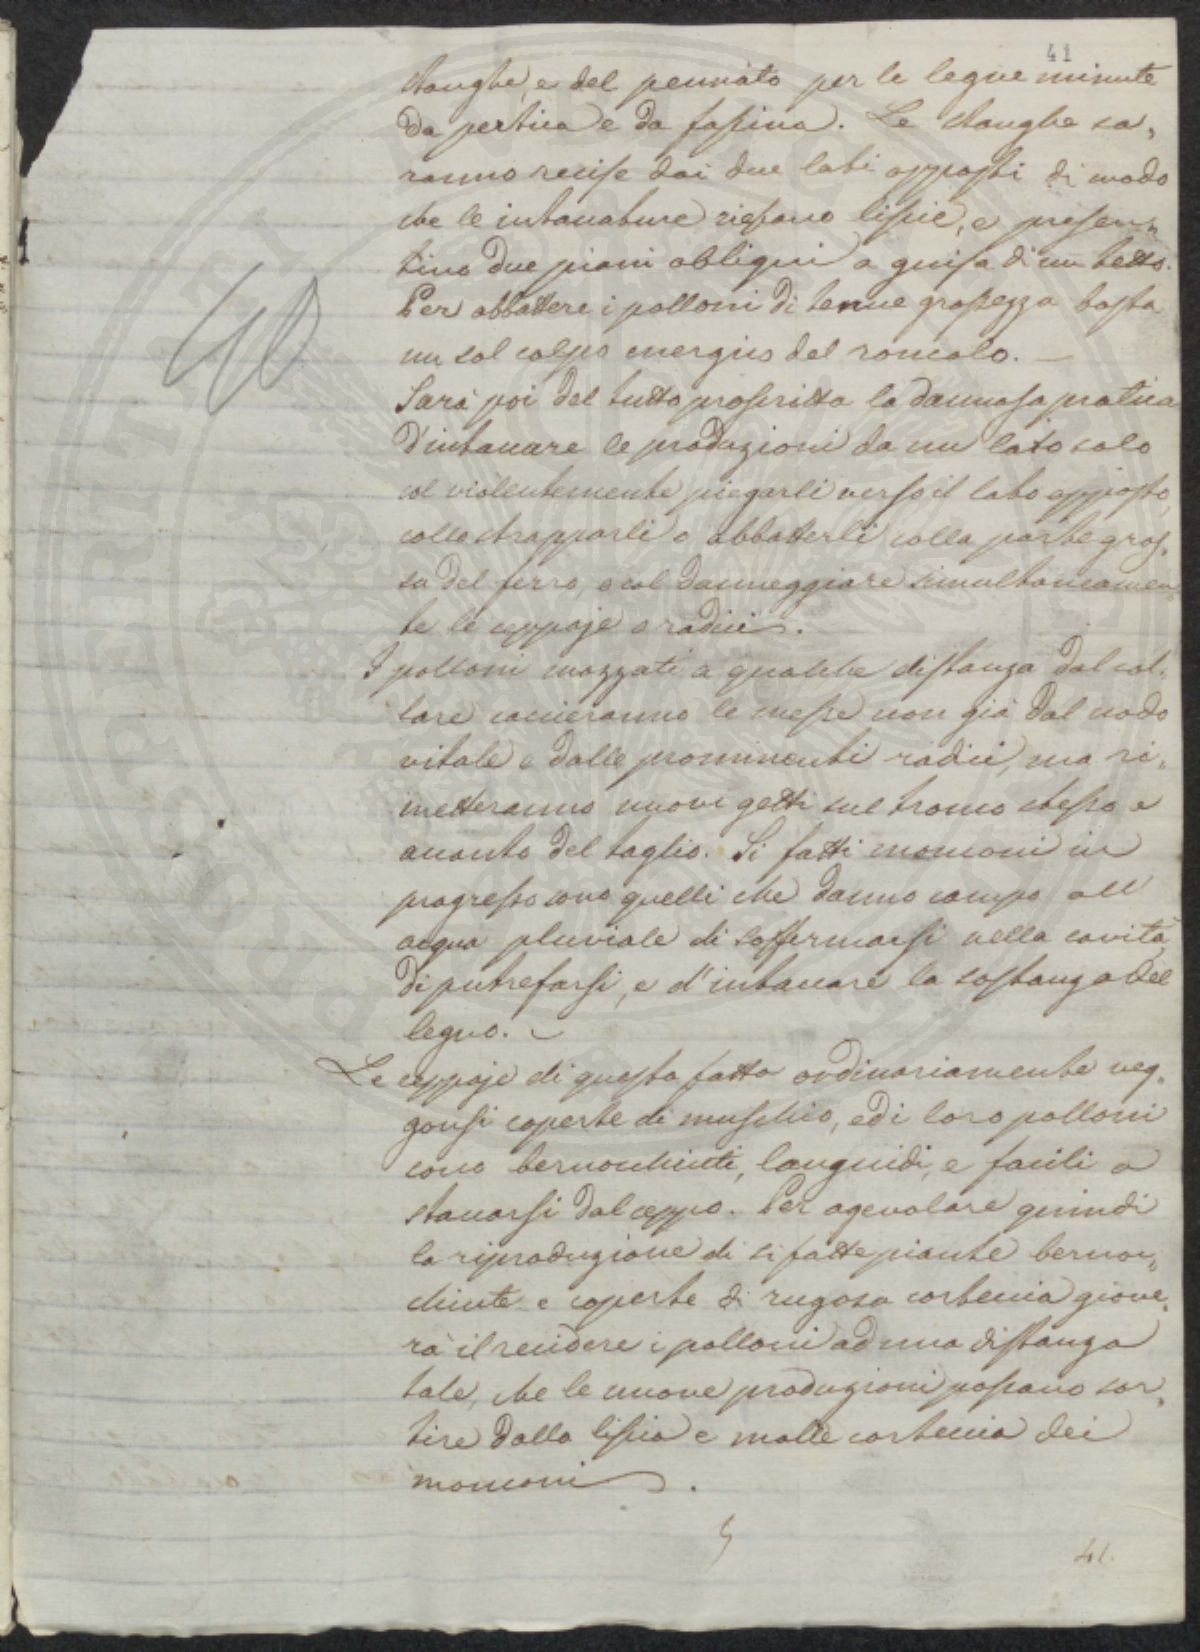 41
stanghe, e del pennato per le legne minute
da pertica e da fassina. Le stanghe sa,,
ranno recise dai due lati opposti di modo
che le intaccature riescano liscie, e presen,,
tino due piani obliqui a guisa di un tetto.
Per abbattere i polloni di tenue grossezza basta
un sol colpo energico del roncolo. —
Sarà poi del tutto proscritta la dannosa pratica
d'intaccare le produzioni da un lato solo
col violentemente piegarli verso il lato opposto,
collo strapparli o abbatterli colla parte gros,,
sa del ferro, o col danneggiare simultaneamen,,
te le ceppaje o radici.
I polloni mozzati a qualche distanza dal col,,
lare caccieranno le messe non già dal nodo
vitale e dalle prominenti radici, ma ri,,
metteranno nuovi getti sul tronco stesso a
canto del taglio. Si fatti monconi in
progresso sono quelli che danno campo all
acqua pluviale di soffermarsi nella cavità
di putrefarsi, e d'intaccare la sostanza del
legno.
Le ceppaje di questa fatta ordinariamente veg,,
gonsi coperte di muschio, ed i loro polloni
sono bernocchiuti, languidi, e facili a
staccarsi dal ceppo. Per agevolare quindi
la riproduzione di si fatte piante bernoc,,
chiute e coperte di rugosa corteccia giove,,
rà il recidere i polloni ad una distanza
tale, che le nuove produzioni possano sor,,
tire dalla liscia e molle corteccia dei
monconi.
41.
40